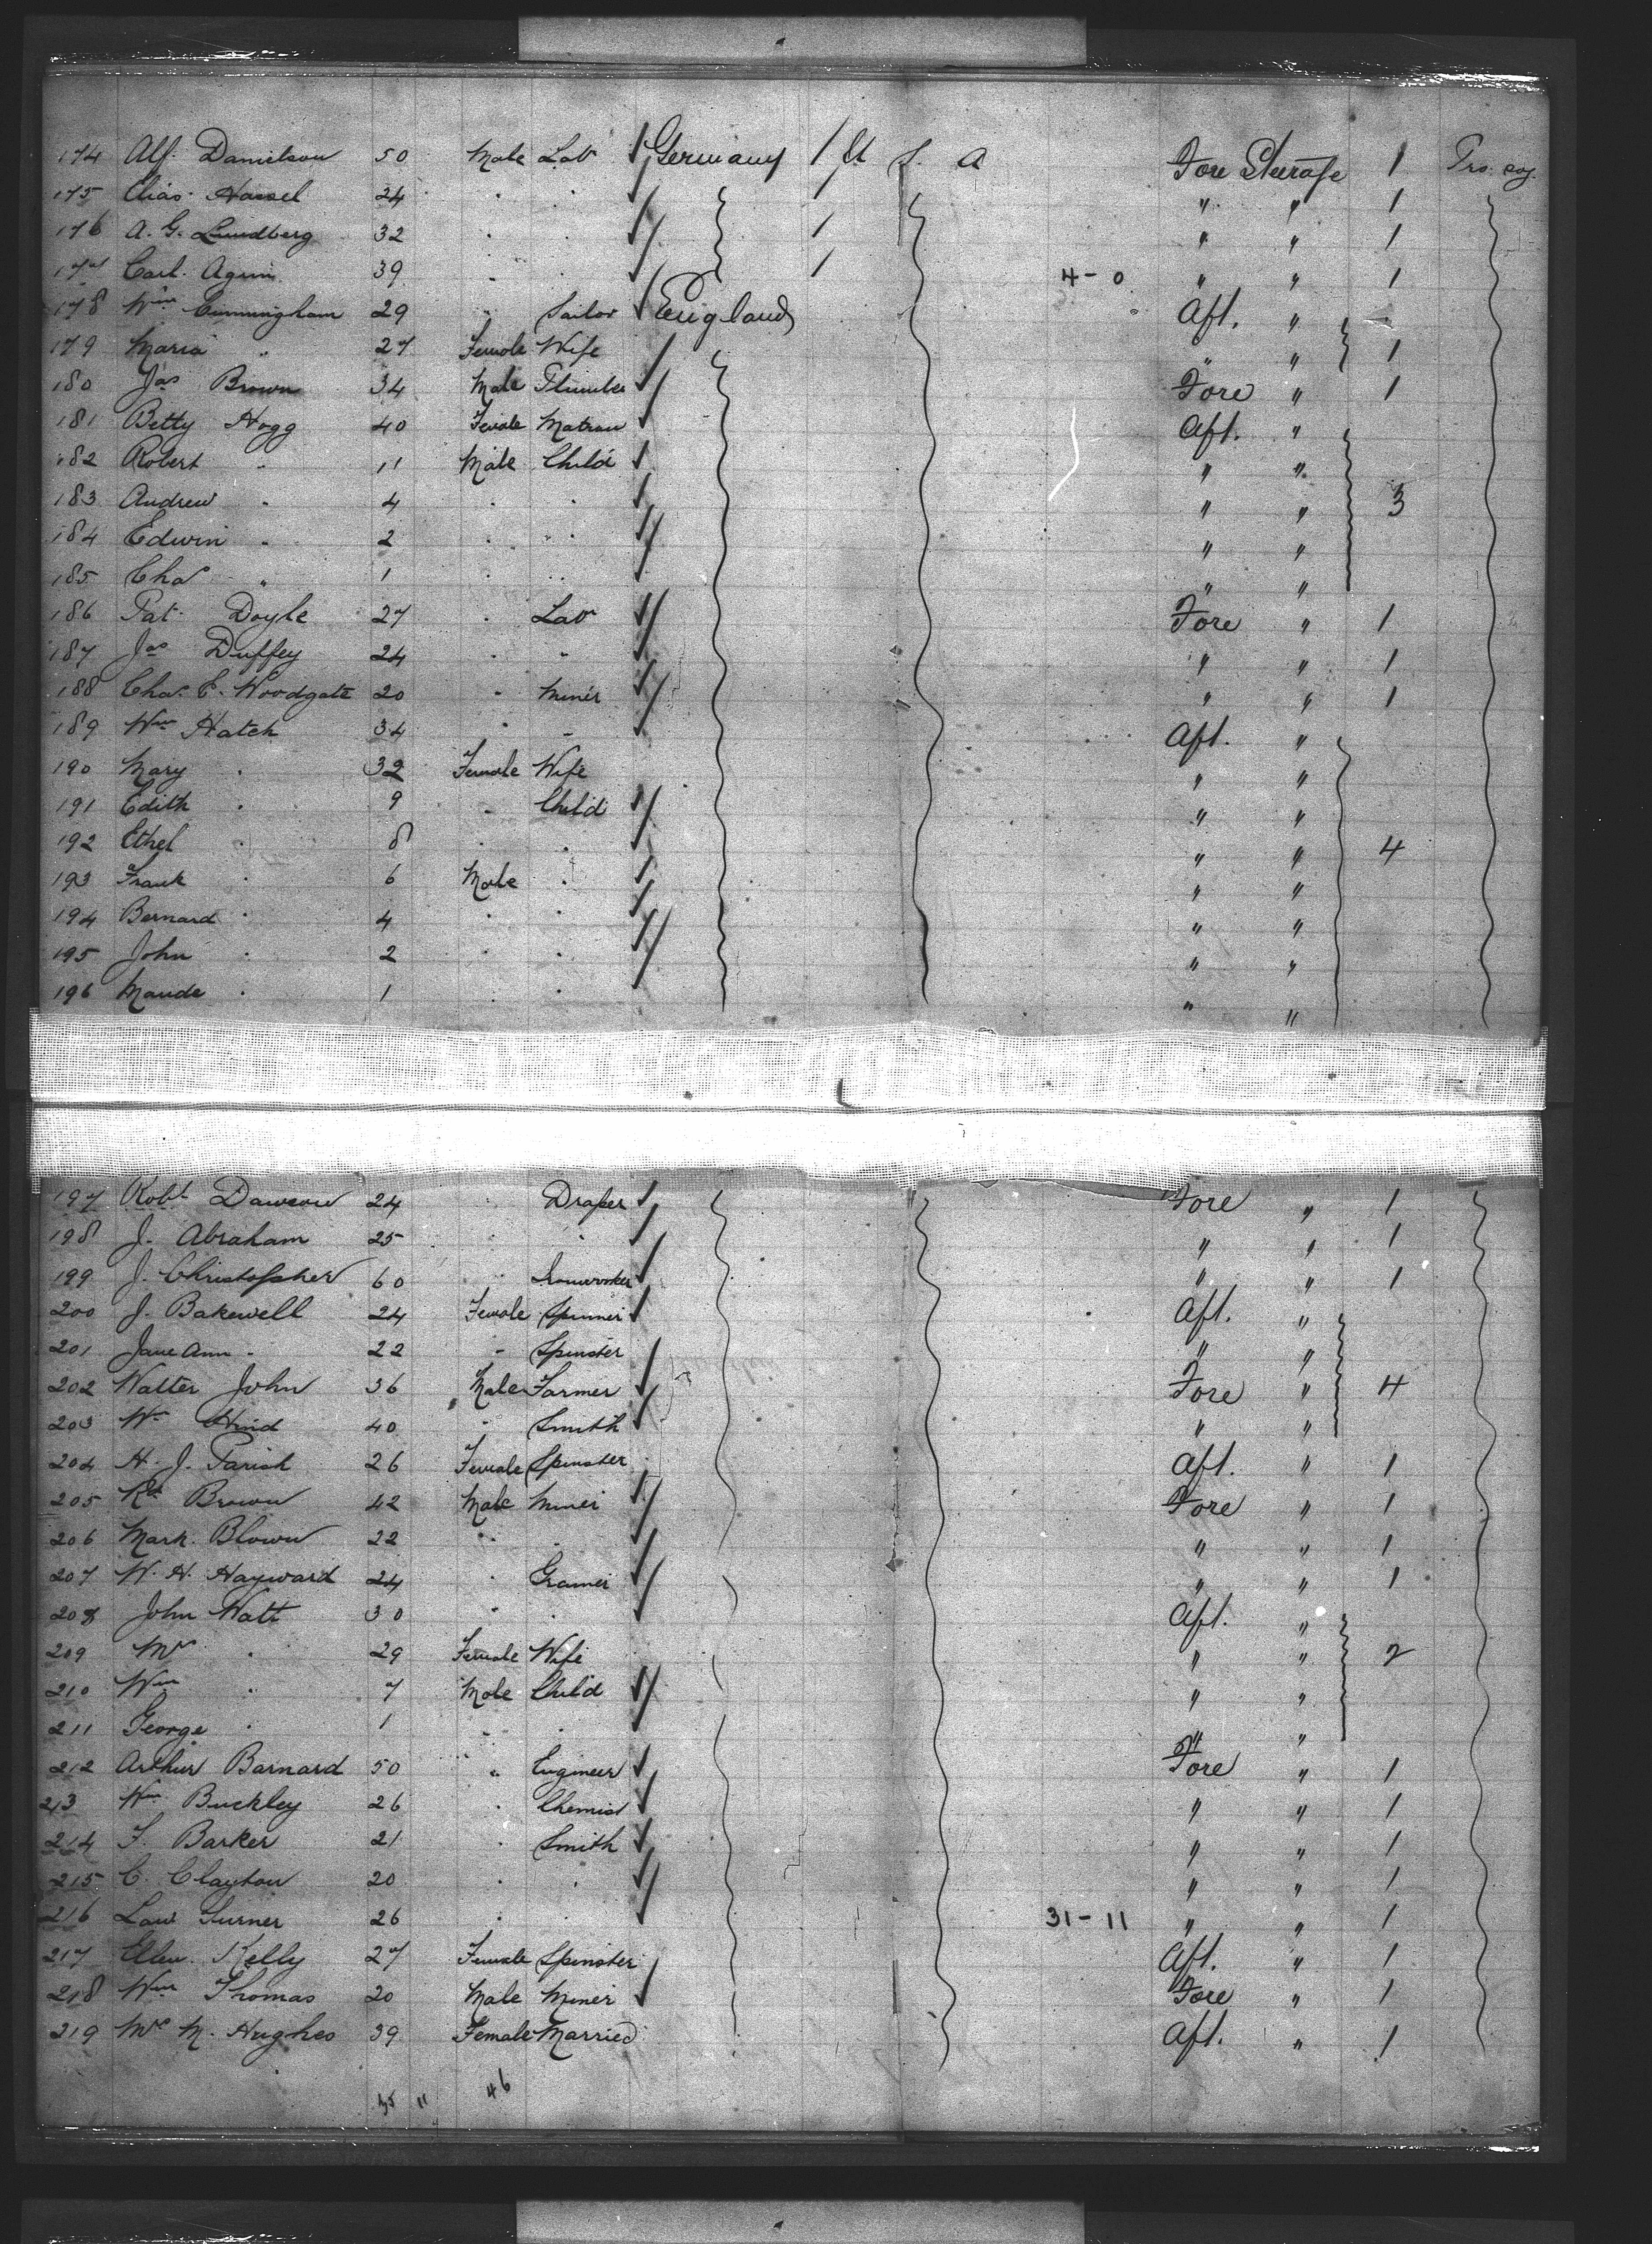 174 Alf. Danielson 50 Male Lab Germany 1 U S. A Fore Steerage 1 Pro. soj.
175 Elias Hassel 24 " " 1 " " 1
176 A. G. Lundberg 32 " " 1 " " 1
177 Carl. Agrin 39 " " 1 4-0 " " 1
178 Wm Cunningham 29 " Sailor England Aft. "
179 Maria " 27 Female Wife " " 1
180 Jas Brown 34 Male Plumber Fore " 1
181 Betty Hogg 40 Female Matron Aft. "
182 Robert " 11 Male Child " "
183 Andrew " 4 " " " " 3
184 Edwin " 2 " " " "
185 Chas " 1 " " " "
186 Pat. Doyle 27 " Lab Fore " 1
187 Jas Duffey 24 " " " " 1
188 Chas. E. Woodgate 20 " Miner " " 1
189 Wm Hatch 34 " " Aft. "
190 Mary " 32 Female Wife " "
191 Edith " 9 " Child " "
192 Ethel " 8 " " " " 4
193 Frank " 6 Male " " "
194 Bernard " 4 " " " "
195 John " 2 " " " "
196 Maude " 1 " " " "
197 Robt Dawson 24 " Draper Fore " 1
198 J. Abraham 25 " " " " 1
199 J. Christopher 60 " Ironworker " " 1
200 J. Bakewell 24 Female Spinner Aft. "
201 Jane Ann " 22 " Spinster " "
202 Walter John 36 Male Farmer Fore " 4
203 Wm Hind 40 " Smith " "
204 H. J. Parish 26 Female Spinster Aft. " 1
205 Rd Brown 42 Male Miner Fore " 1
206 Mark Blown 22 " " " " 1
207 W. H. Hayward 24 " Grainer " " 1
208 John Watt 30 " " Aft. "
209 Mrs " 29 Female Wife " " 2
210 Wm " 7 Male Child " "
211 George " 1 " " " "
212 Arthur Barnard 50 " Engineer Fore " 1
213 Wm Buckley 26 " Chemist " " 1
214 F. Barker 21 " Smith " " 1
215 C. Clayton 20 " " " " 1
216 Law Turner 26 " " 31-11 " " 1
217 Ellen Kelly 27 Female Spinster Aft. " 1
218 Wm Thomas 20 Male Miner Fore " 1
219 Mrs M. Hughes 39 Female Married Aft. " 1
35 11 46